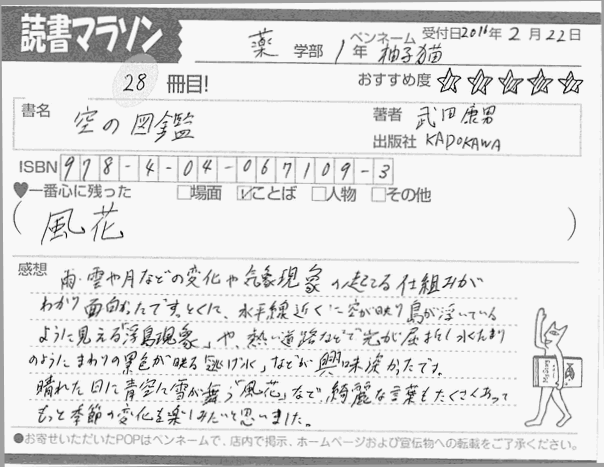 読書マラソン
薬 学部 1年 ペンネーム 柚子猫 受付日2016年2月22日
28 冊目! おすすめ度 ☆☆☆☆☆
書名 空の図鑑 著者 武田康男
出版社 KADOKAWA
ISBN 978-4-04-067109-3
♥一番心に残った □場面 ☑ことば □人物 □その他
( 風花 )
感想 雨・雲や月などの変化や気象現象の起こる仕組みが
わかり面白かったです。とくに、水平線近くに空が映り島が浮いている
ように見える「浮島現象」や、熱い道路などで光が屈折し水たまり
のようにまわりの景色が映る「逃げ水」などが興味深かったです。
晴れた日に青空に雪が舞う「風花」など綺麗な言葉もたくさんあって
もっと季節の変化を楽しみたいと思いました。
●お寄せいただいたPOPはペンネームで、店内で掲示、ホームページおよび宣伝物への転載をご了承ください。